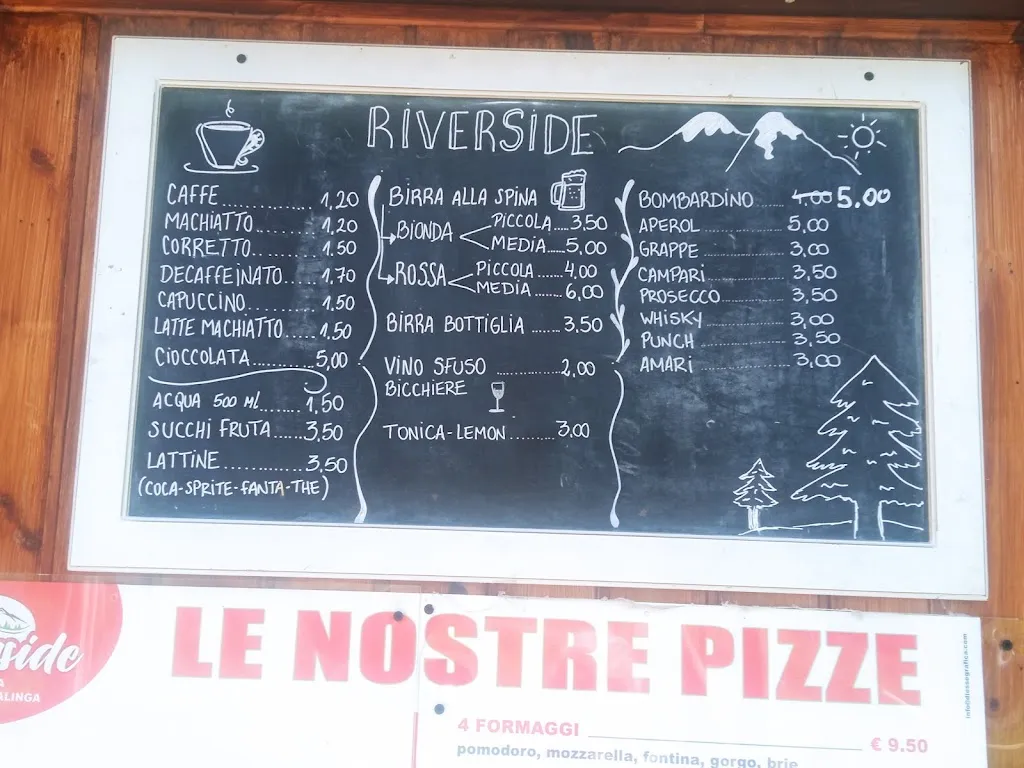 RIVERSIDE
CAFFE.................1,20
MACHIATTO.........1,20
CORRETTO............1.50
DECAFFEINATO......1,70
CAPUCCINO..........1,50
LATTE MACHIATTO..1,50
CIOCCOLATA..........5,00
ACQUA 500 ml.......1,50
SUCCHI FRUTA......3,50
LATTINE.............3,50
(COCA-SPRITE-FANTA-THE)
BIRRA ALLA SPINA
BIONDA
PICCOLA....3,50
MEDIA.....5,00
ROSSA
PICCOLA....4,00
MEDIA.......6,00
BIRRA BOTTIGLIA.......3,50
VINO SFUSO..............2,00
BICCHIERE
TONICA-LEMON.........3,00
BOMBARDINO......4.00 5,00
APEROL.................5,00
GRAPPE.................3,00
CAMPARI...............3,50
PROSECCO............3,50
WHISKY................3,00
PUNCH.................3,50
AMARI..................3,00
side
A
ALINGA
LE NOSTRE PIZZE
4 FORMAGGI € 9.50
pomodoro, mozzarella, fontina, gorgo, brie